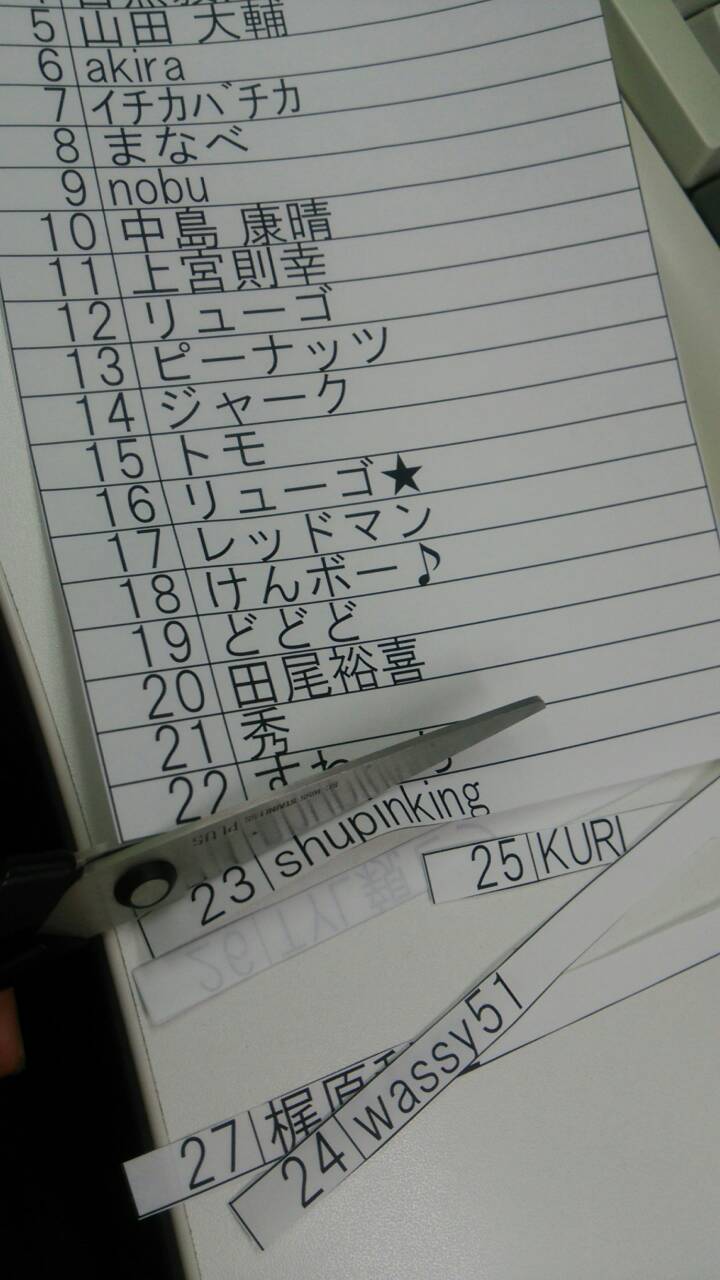 5 山田 大輔
6 akira
7 イチカバチカ
8 まなべ
9 nobu
10 中島 康晴
11 上宮則幸
12 リューゴ
13 ピーナッツ
14 ジャーク
15 トモ
16 リューゴ★
17 レッドマン
18 けんボー♪
19 どどど
20 田尾裕喜
21 秀
22
PLUS
23 shupinking
25 KURI
26 TYL
24 wassy51
27 梶原